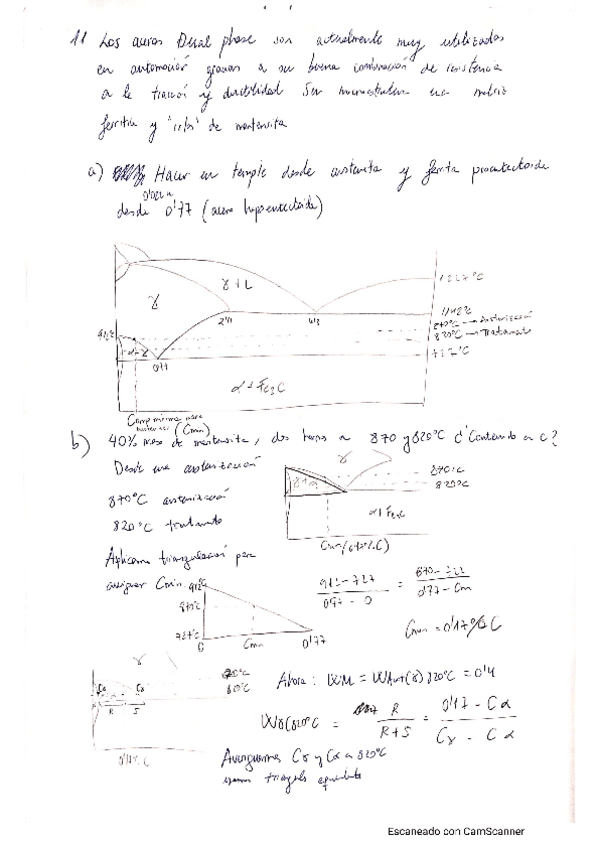 11 Los aceros Dual phase son actualmente muy utilizados
en automoción gracias a su buena combinación de resistencia
a la tracción y ductilidad. Su microestructura una matriz
ferrítica y "islas" de martensita
a) Hacer un temple desde austenita y ferrita proeutectoide
0'022 a
desde 0'77 (acero hipoeutectoide)
γ+L
γ
1227ºC
1148ºC
2'11
4'3
870ºC → austenización
820ºC → Tratamiento
912ºC
α+γ
727ºC
0'77
α+Fe3C
Comp mínima para
(Cmin)
b) 40% masa de martensita, dos temps a 870 y 820ºC ¿Contenido en C?
Desde una austenización
870ºC austenización
820ºC tratamiento
γ
870ºC
γ+α
820ºC
α+Fe3C
Cmin (870ºC)
Aplicamos triangulación para
averiguar Cmin
912ºC
870ºC
727ºC
0
Cmin
0'77
912-727 / 0'77-0 = 870-727 / 0'77-Cm
Cmin = 0'17% C
γ
Cα
Cγ
R S
0'17 C
Ahora: WM = WAust(γ) 820ºC = 0'4
Wγ(820ºC = R / R+S = 0'17-Cα / Cγ-Cα
Averiguamos Cγ y Cα a 820ºC
triángulo equivalente
Escaneado con CamScanner